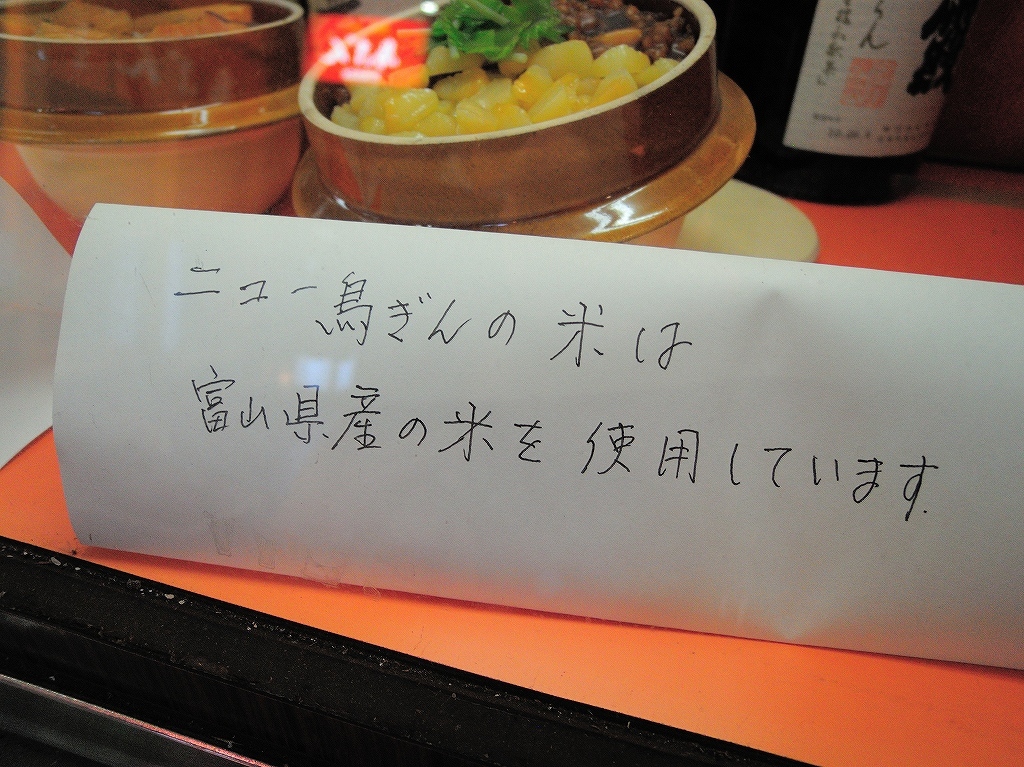 ニュー鳥ぎんの米は
富山県産の米を使用しています.